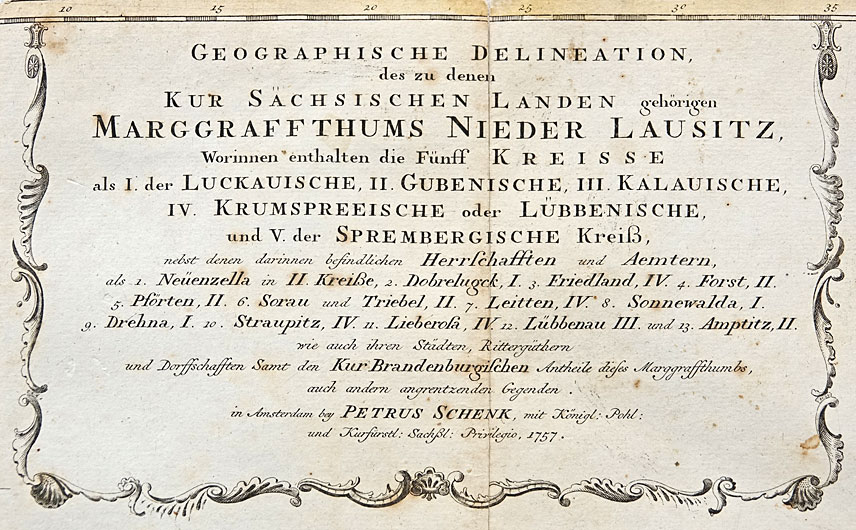 10 15 20 25 30 35
GEOGRAPHISCHE DELINEATION,
des zu denen
KUR SÄCHSISCHEN LANDEN gehörigen
MARGGRAFFTHUMS NIEDER LAUSITZ,
Worinnen enthalten die Fünff KREISSE
als I. der LUCKAUISCHE, II. GUBENISCHE, III. KALAUISCHE,
IV. KRUMSPREEISCHE oder LÜBBENISCHE,
und V. der SPREMBERGISCHE Kreiß,
nebst denen darinnen befindlichen Herrschafften und Aemtern,
als 1. Neüenzella in II Kreiße, 2. Dobrelugck, I. 3. Friedland, IV. 4. Forst, II.
5. Pförten, II. 6. Sorau und Triebel, II. 7. Leitten, IV. 8. Sonnewalda, I.
9. Drehna, I. 10. Straupitz, IV. 11. Lieberosa, IV. 12. Lübbenau III. und 13. Amptitz, II.
wie auch ihren Städten, Rittergüthern
und Dorffschafften Samt den Kur Brandenburgischen Antheile dieses Marggraffthumbs,
auch andern angrentzenden Gegenden.
in Amsterdam bey PETRUS SCHENK, mit Königl: Pohl:
und Kurfürstl: Sachßl: Privilegio, 1757.